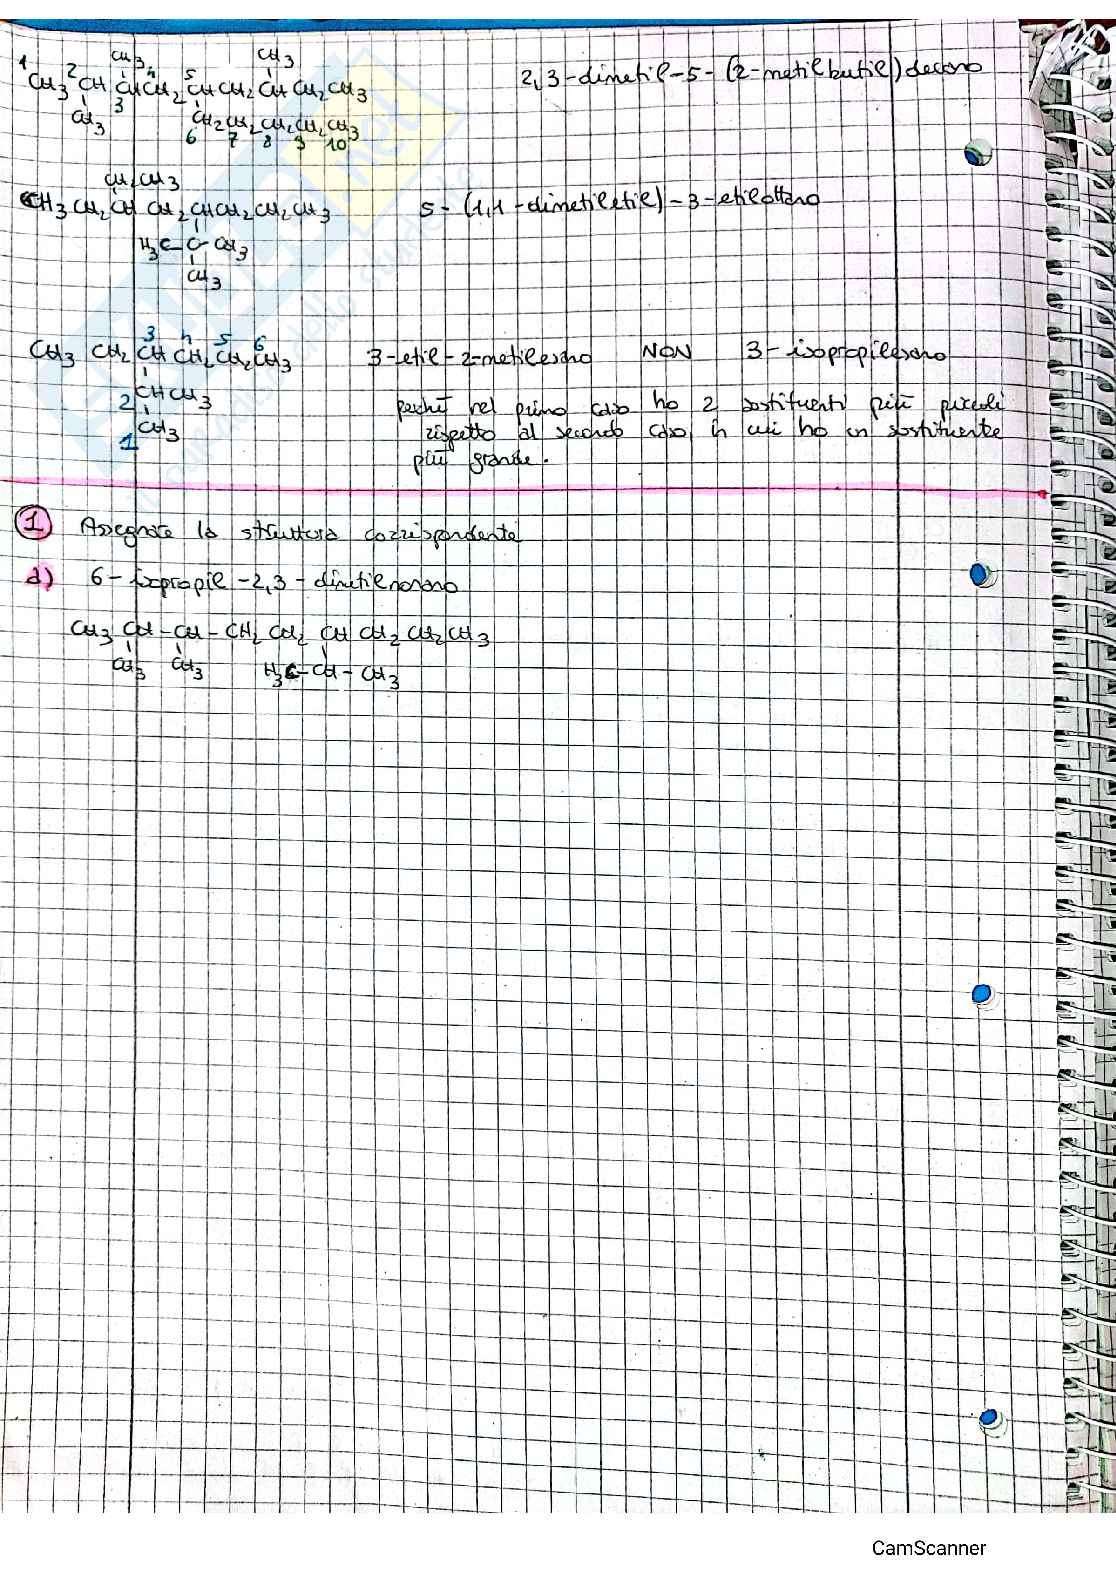 CH3 CH3
1 2 4 5
CH3 CH CH CH2 CH CH2 CH CH2 CH3 2,3-dimetil-5-(2-metilbutil)decano
3
CH3 CH2 CH2 CH2 CH2 CH3
6 7 8 9 10
CH2CH3
CH3 CH2 CH CH2 CH CH2 CH2 CH3 5-(1,1-dimetiletil)-3-etilottano
H3C-C-CH3
CH3
3 4 5 6
CH3 CH2 CH CH2 CH2 CH3 3-etil-2-metilesano NON 3-isopropilesano
2 CH CH3 perché nel primo caso ho 2 sostituenti più piccoli
CH3 rispetto al secondo caso, in cui ho un sostituente
1 più grande.
1 Assegnare la struttura corrispondente
a) 6-isopropil-2,3-dimetilnonano
CH3 CH-CH-CH2 CH2 CH CH2 CH2 CH3
CH3 CH3 H3C-CH-CH3
CamScanner